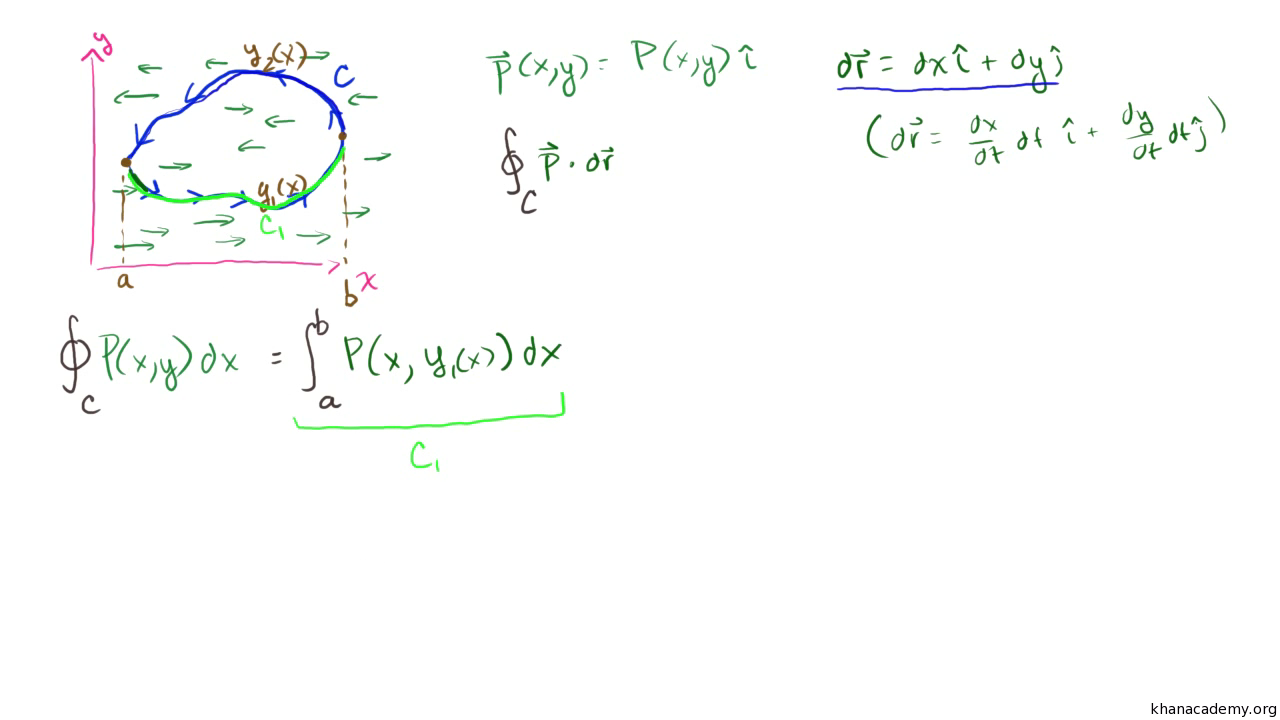 y
y₂(x)
C
y₁(x)
C₁
a
b
x
P⃗(x,y) = P(x,y) î
dr⃗ = dx î + dy ĵ
(dr⃗ = dx/dt dt î + dy/dt dt ĵ)
∮_C P⃗ · dr⃗
∮_C P(x,y) dx = ∫_a^b P(x, y₁(x)) dx
C₁
khanacademy.org